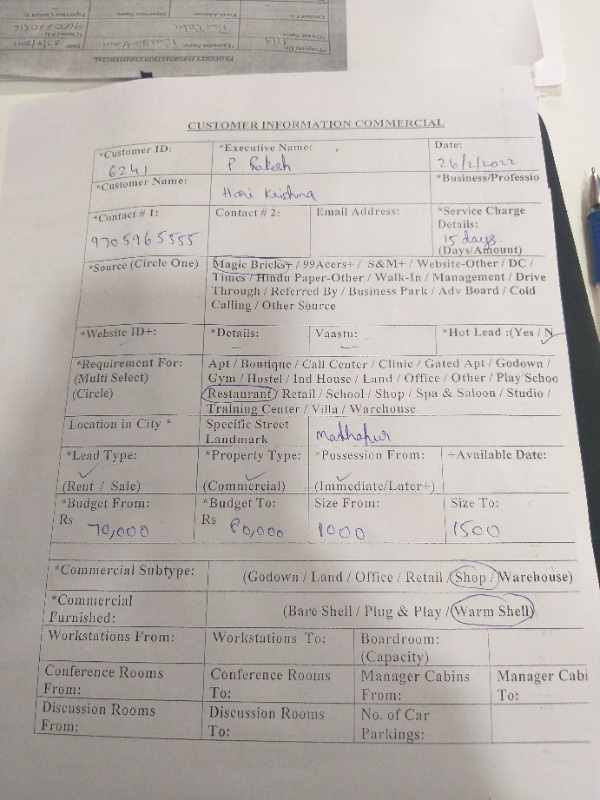 CUSTOMER INFORMATION COMMERCIAL
*Customer ID: *Executive Name: Date:
6241 P Rakesh 26/2/2022
*Customer Name: Hari Krishna *Business/Professio
*Contact # 1: Contact # 2: Email Address: *Service Charge
Details:
9705965555 15 days
(Days/Amount)
*Source (Circle One) Magic Bricks+ / 99Acers+ / S&M+ / Website-Other / DC /
Times / Hindu Paper-Other / Walk-In / Management / Drive
Through / Referred By / Business Park / Adv Board / Cold
Calling / Other Source
*Website ID+: *Details: Vaastu: *Hot Lead :(Yes / N
*Requirement For: Apt / Boutique / Call Center / Clinic / Gated Apt / Godown /
(Multi Select) Gym / Hostel / Ind House / Land / Office / Other / Play Schoo
(Circle) Restaurant / Retail / School / Shop / Spa & Saloon / Studio /
Training Center / Villa / Warehouse
Location in City * Specific Street
Landmark Madhapur
*Lead Type: *Property Type: *Possession From: +Available Date:
(Rent / Sale) (Commercial) (Immediate/Later+)
*Budget From: *Budget To: Size From: Size To:
Rs 70,000 Rs 80,000 1000 1500
*Commercial Subtype: (Godown / Land / Office / Retail / Shop / Warehouse)
*Commercial
Furnished: (Bare Shell / Plug & Play / Warm Shell)
Workstations From: Workstations To: Boardroom:
(Capacity)
Conference Rooms Conference Rooms Manager Cabins Manager Cabi
From: To: From: To:
Discussion Rooms Discussion Rooms No. of Car
From: To: Parkings: